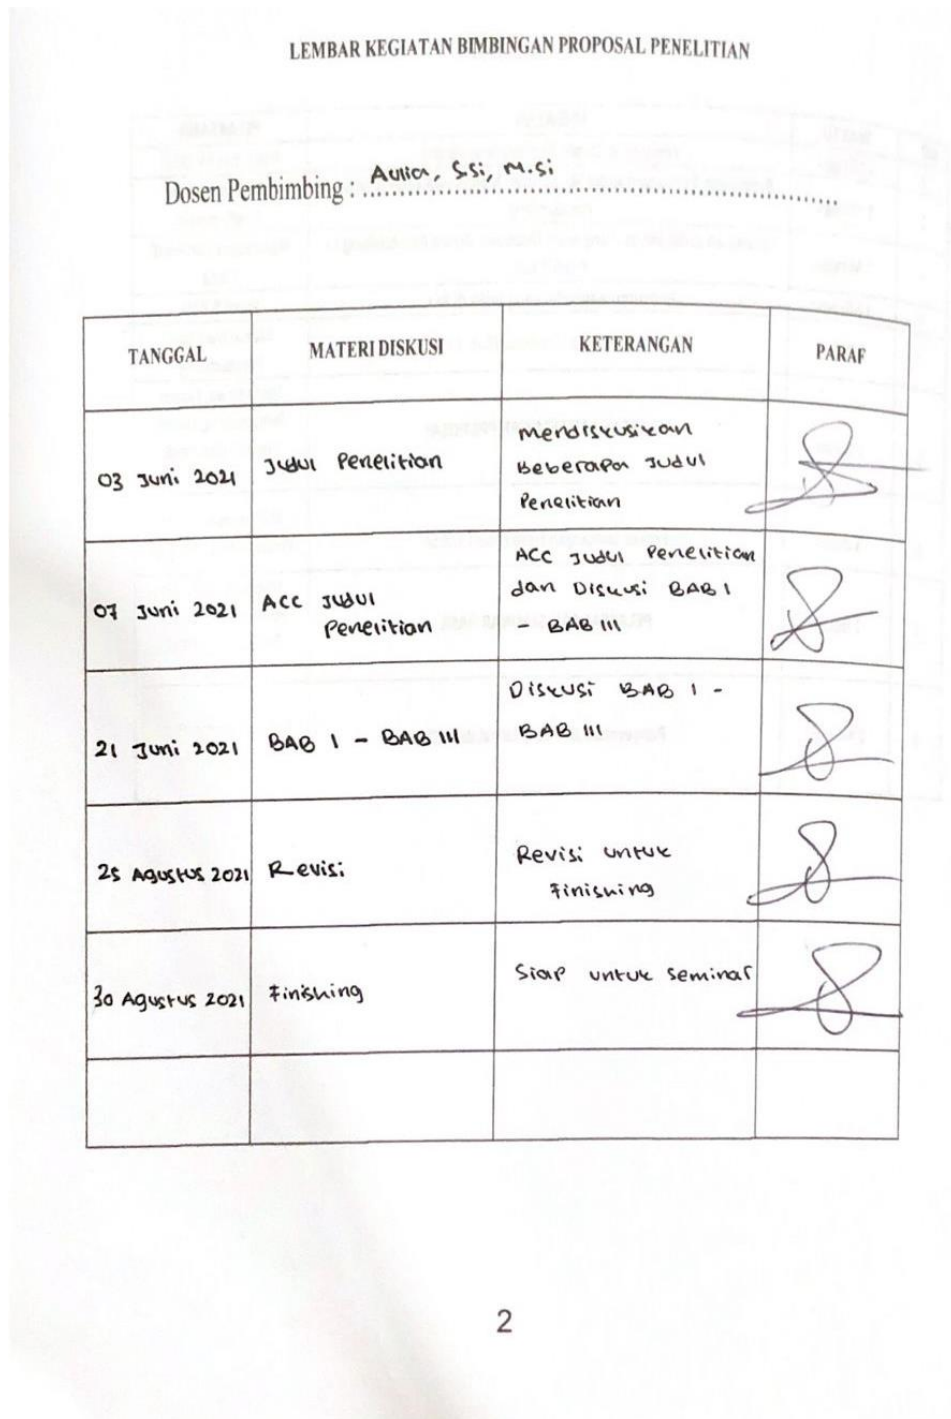 LEMBAR KEGIATAN BIMBINGAN PROPOSAL PENELITIAN
Dosen Pembimbing : Aulia, S.Si, M.Si
TANGGAL MATERI DISKUSI KETERANGAN PARAF
03 Juni 2021 Judul Penelitian mendiskusikan
Beberapa Judul
Penelitian
07 Juni 2021 ACC Judul
Penelitian ACC Judul Penelitian
dan Diskusi BAB I
- BAB III
21 Juni 2021 BAB I - BAB III Diskusi BAB I -
BAB III
25 Agustus 2021 Revisi Revisi untuk
Finishing
30 Agustus 2021 Finishing Siap untuk seminar
2